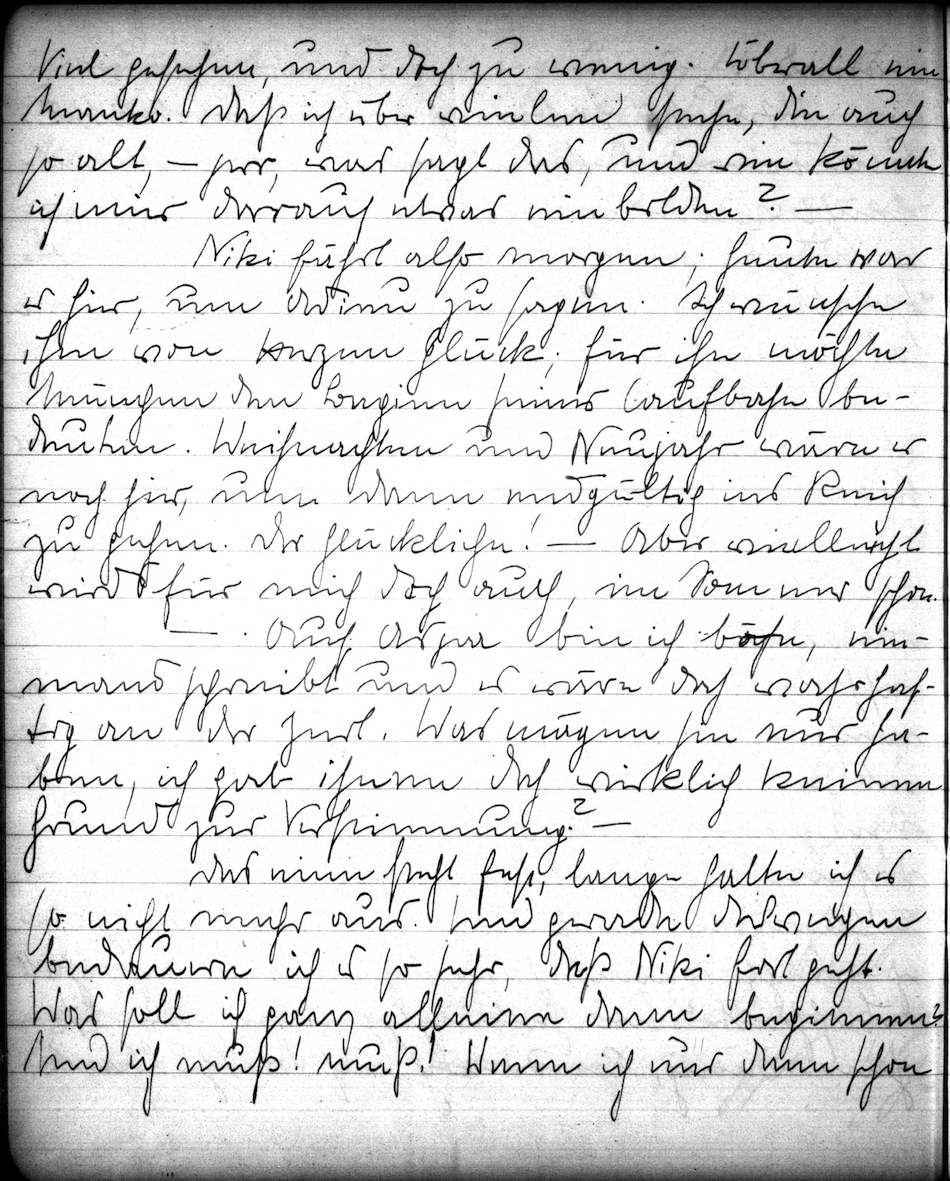 Viel gesehen, und doch zu wenig. Überall ein
Manko. Daß ich über vielem stehe, die auch
so alt, – pss, was sagt das, und wie könnte
ich mir darauf etwas einbilden? —
Niki fährt also morgen; heute war
er hier, um Adieu zu sagen. Ich wünsche
ihm von Herzen Glück; für ihn möchte
München den Beginn seiner Laufbahn be-
deuten. Weihnachten und Neujahr wäre er
noch hier, um dann endgültig ins Reich
zu gehen. Der Glückliche! — Aber vielleicht
wird's für mich doch auch, im Sommer schon.
— . Auf bin ich böse, nie-
mand schreibt und es wäre doch wahrhaf-
tig an der Zeit. Was mögen sie nur ha-
ben, ich gab ihnen doch wirklich keinen
Grund zur Verstimmung? —
Das eine steht fest, lange halte ich es
so nicht mehr aus. Und gerade deswegen
bedauere ich es so sehr, daß Niki fort geht.
Was soll ich ganz alleine dann beginnen?
Und ich muß! muß! Wenn ich nur dann schon